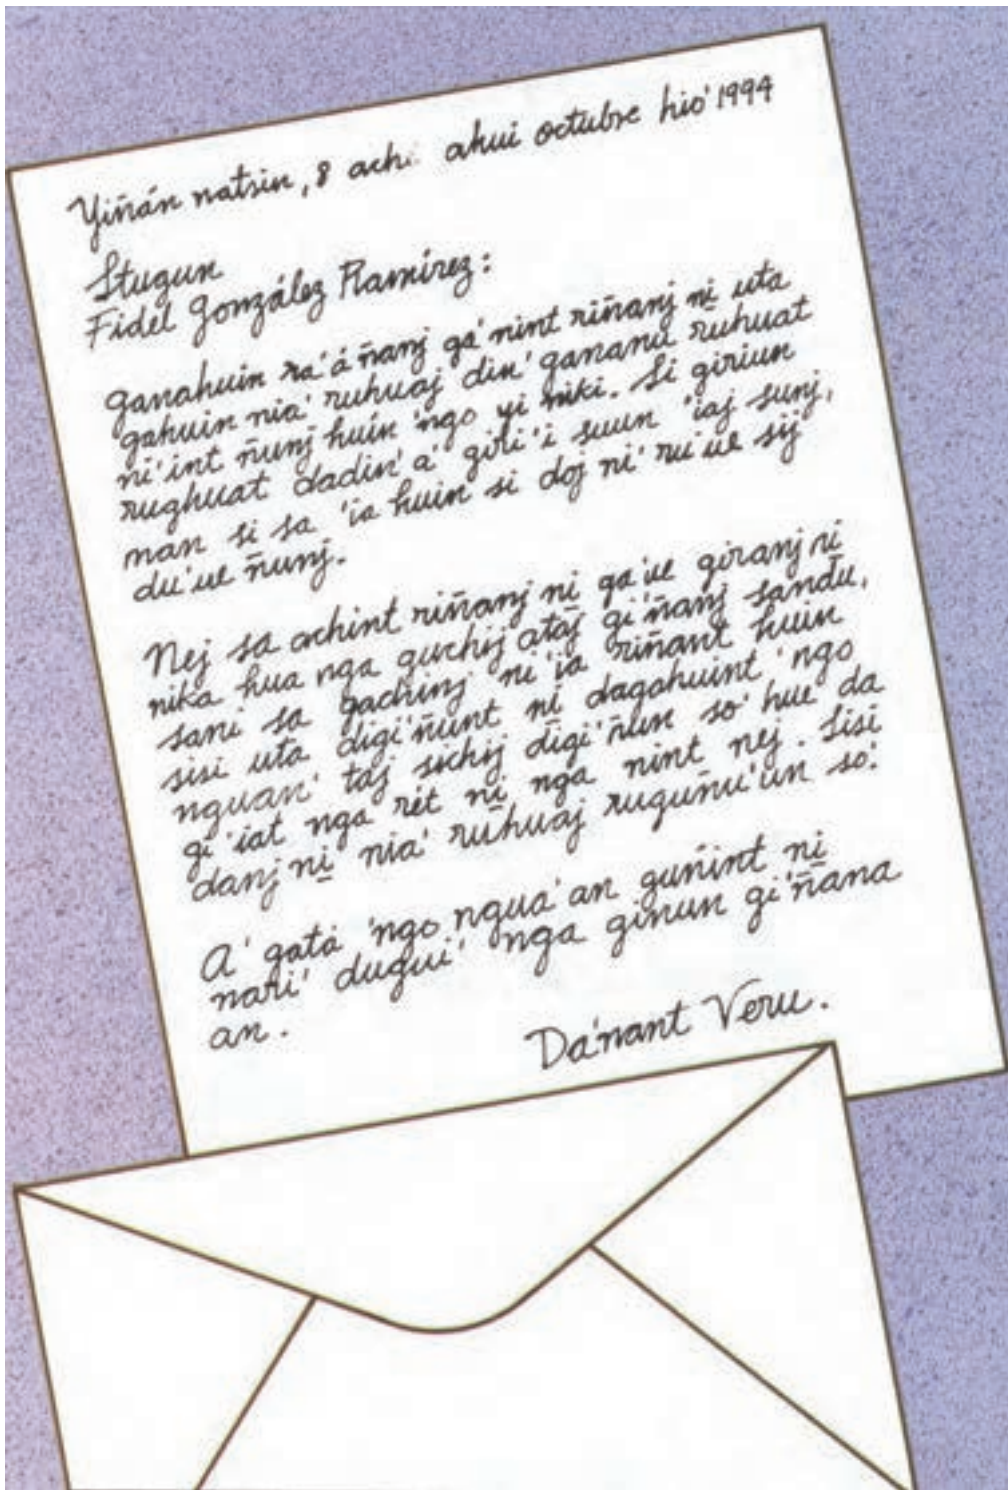 Yiñán natsin, 8 ach ahui octubre hio' 1994
Stugun
Fidel González Ramírez:
Ganahuin ra'a ñanj ga'nint riñanj ni uta
gahuin nia' ruhuaj din' gananu ruhuat
ni'int ñunj huin 'ngo yi niki. Si giriun
rughuat dadin' a' giri'i suun 'iaj sunj,
man si sa 'ia huin si doj ni' ru'ue sij
du'ue ñunj.
Nej sa achint riñanj ni ga'ue giranj ni
nika hua nga guchij ataj gi'ñanj sandu,
sani sa gachinj ni 'ia riñant huin
sisi uta digi'ñunt ni dagahuint 'ngo
nguan' taj sichij digi'ñun so' hue da
gi'iat nga rét ni nga nint nej. Sisi
danj ni nia' ruhuaj ruguñu'un so'.
A' gata 'ngo ngua'an guñint ni
nari' dugui' nga ginun gi'ñana
an.
Da'nant Veru.